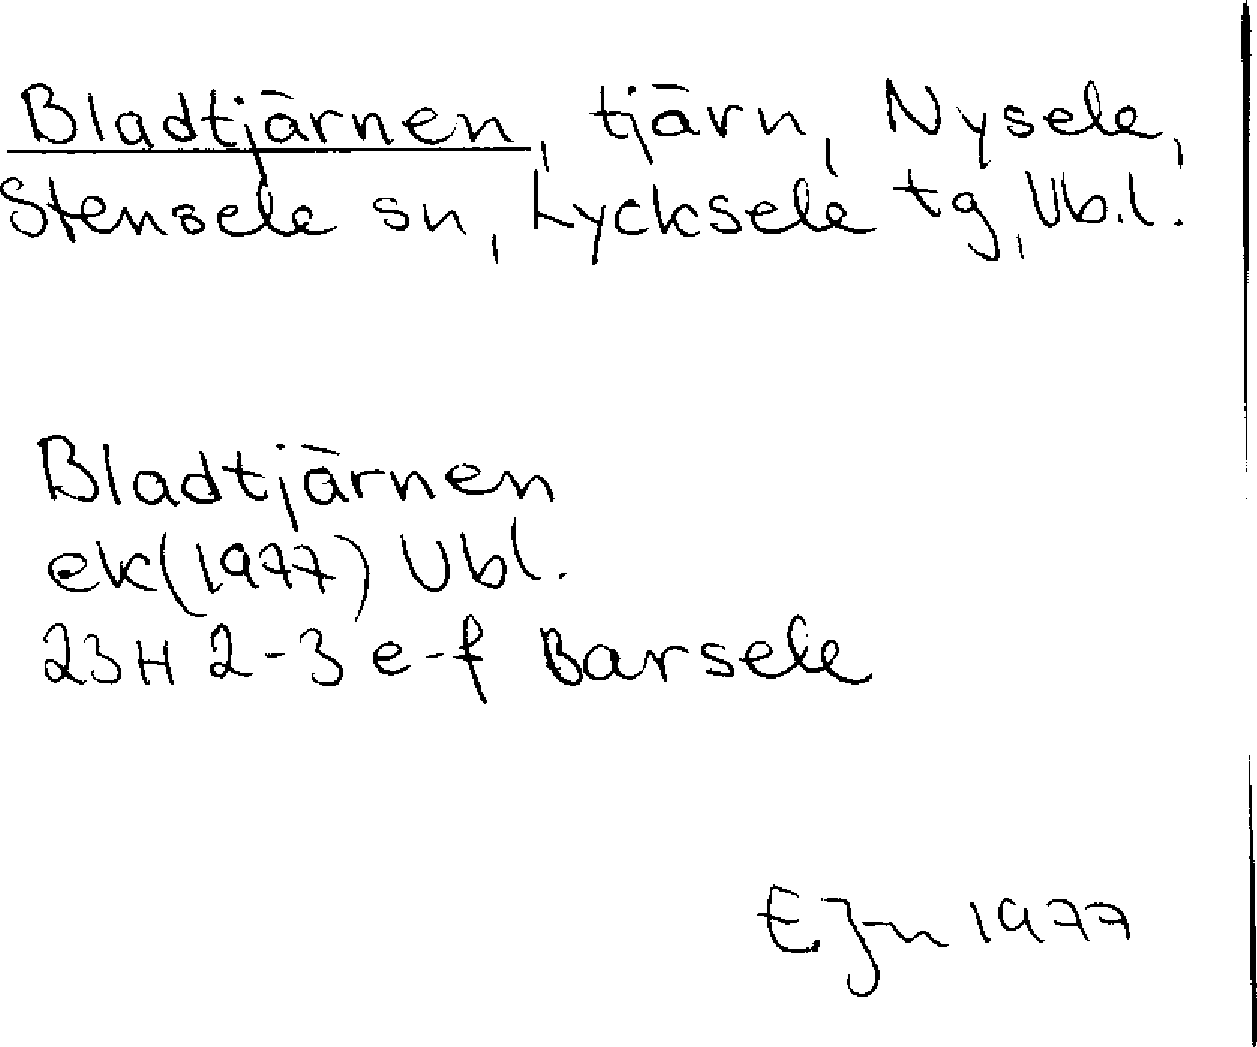 Bladtjärnen, tjärn, Nysele,
Stensele sn, Lycksele tg, Vb.l.
Bladtjärnen
ek(1977) Vbl.
23H 2-3 e-f Barsele
E Jn 1977